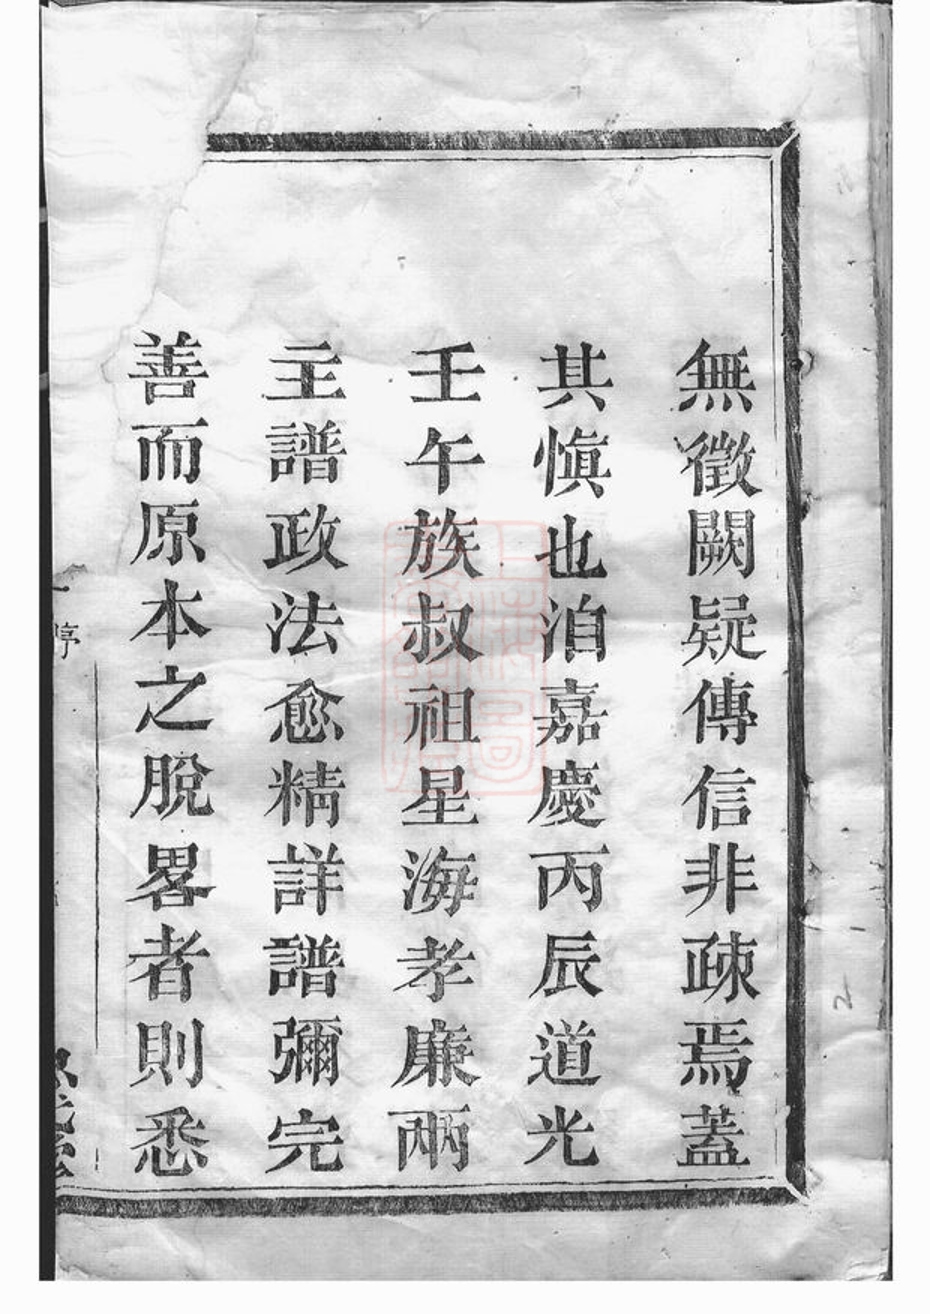 無徵闕疑傳信非疎焉蓋
其愼也洎嘉慶丙辰道光
壬午族叔祖星海孝廉兩
主譜政法愈精詳譜彌完
善而原本之脫畧者則悉
序